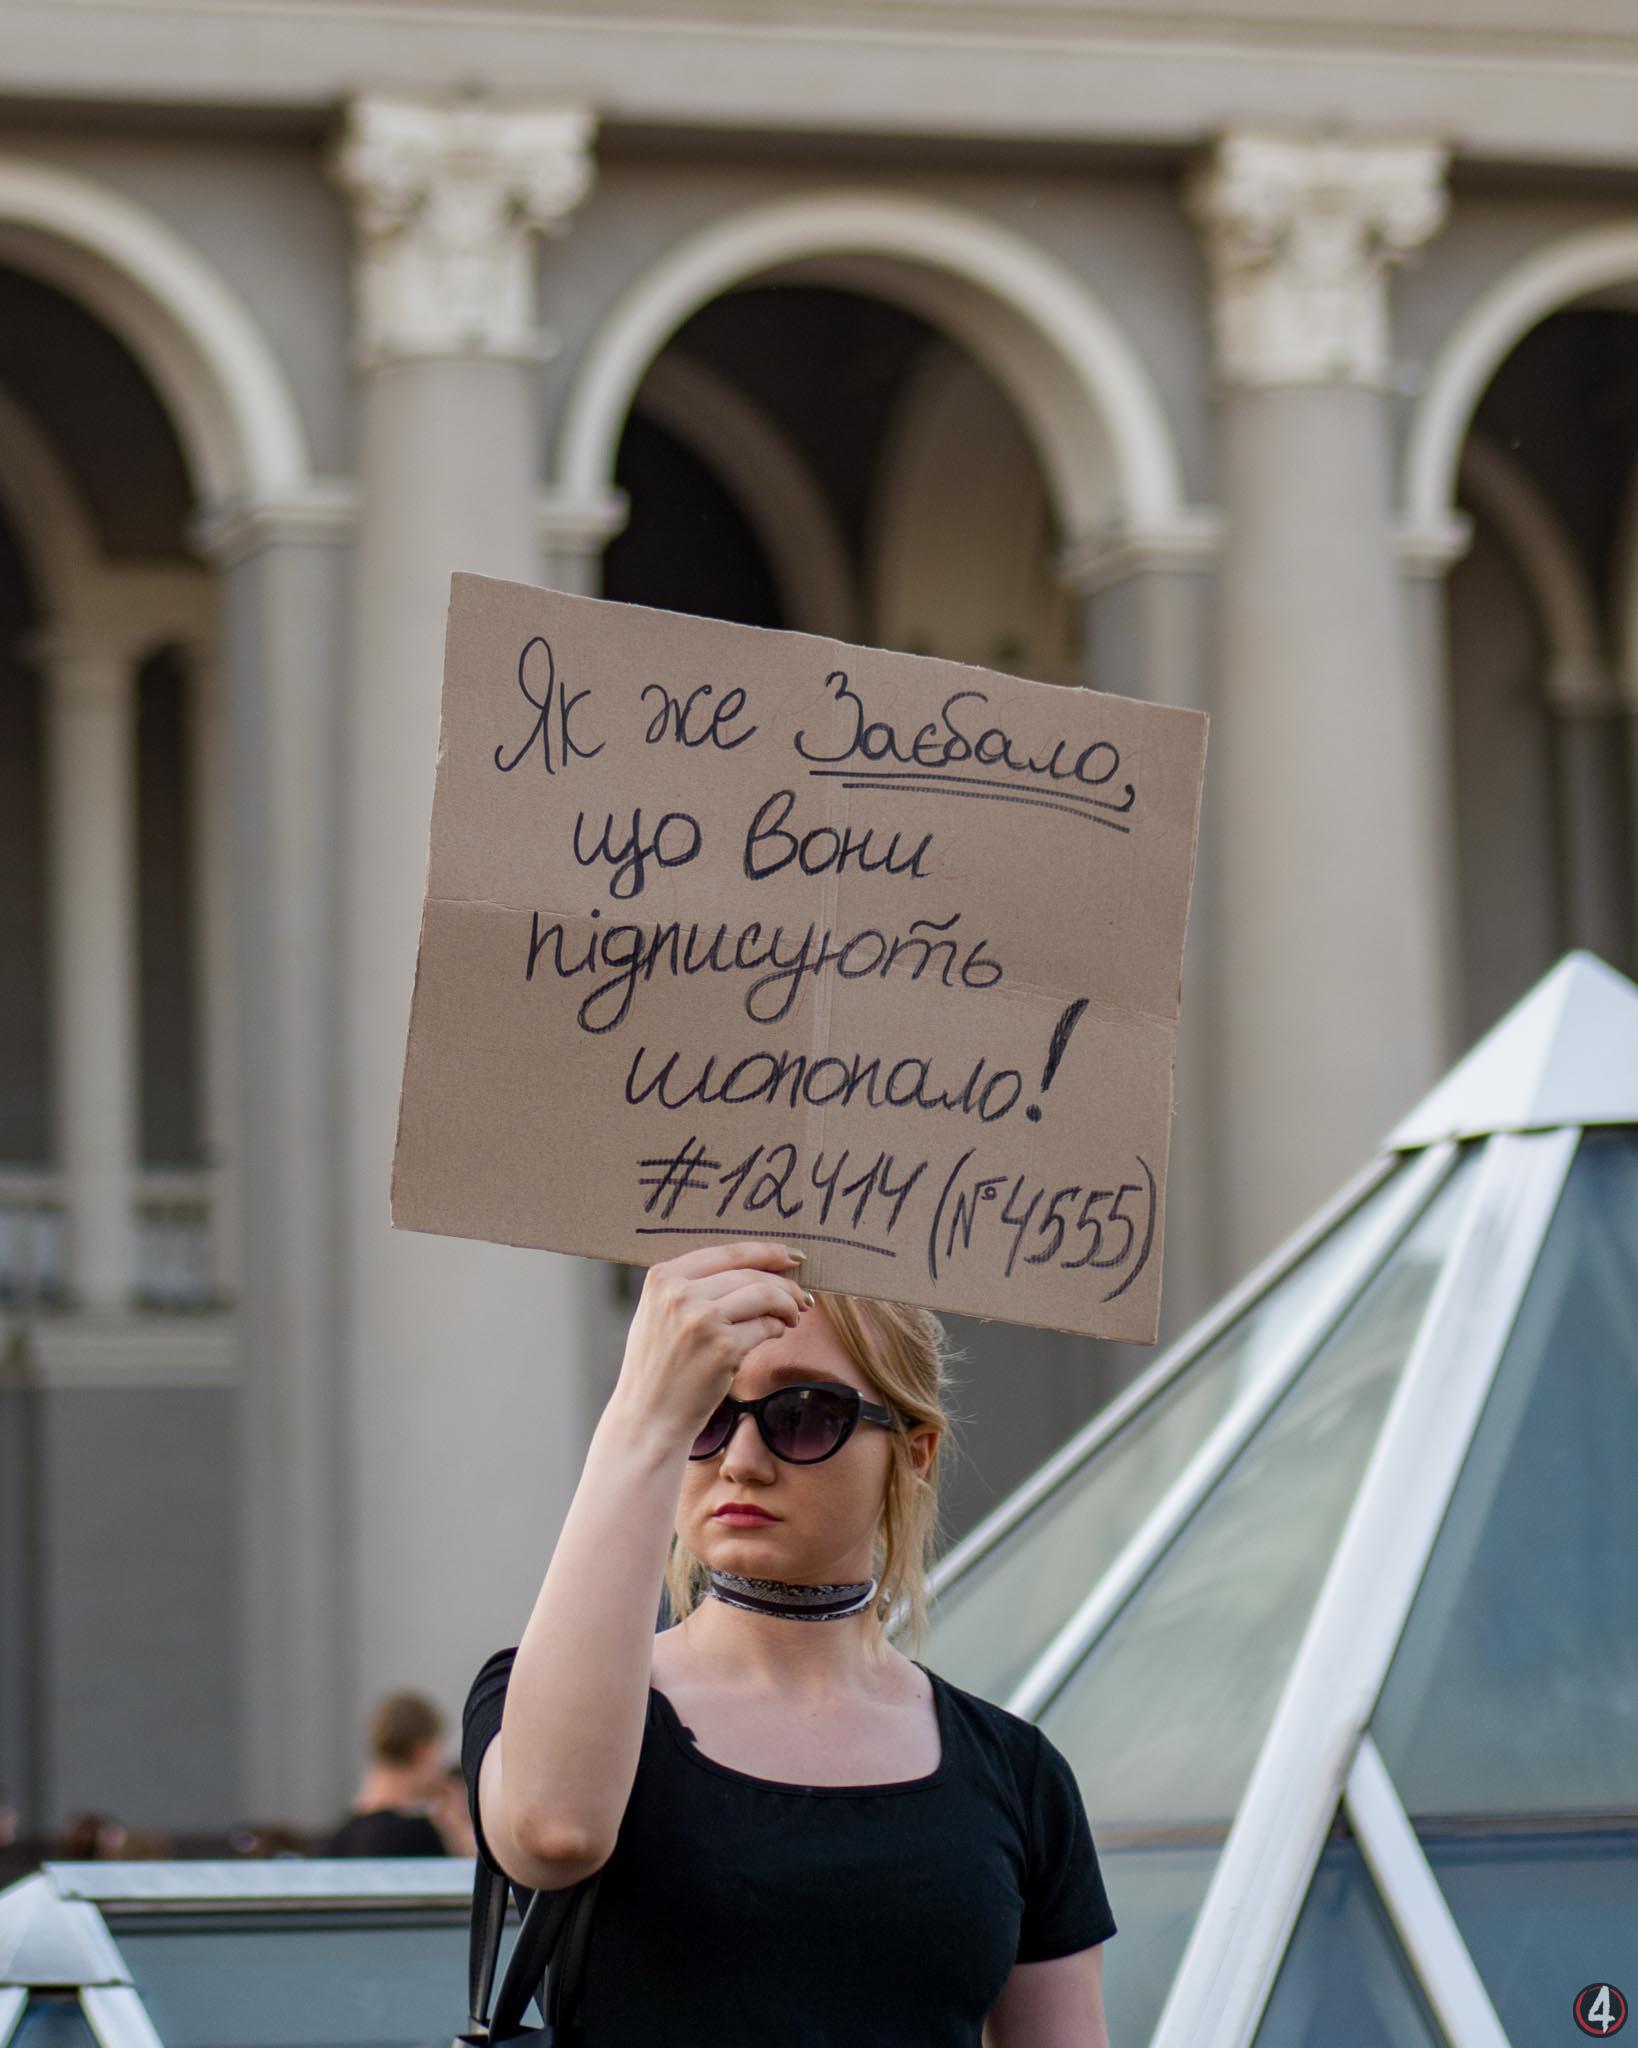 Як же Заєбало,
що вони
підписують
шопопало!
#12414 (№4555)
4